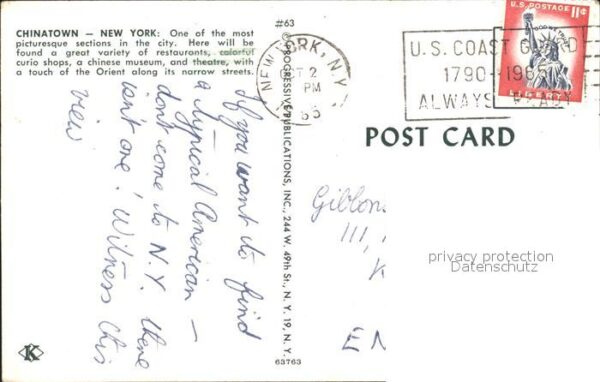 #63
CHINATOWN — NEW YORK: One of the most
picturesque sections in the city. Here will be
found a great variety of restaurants, colorful
curio shops, a chinese museum, and theatre, with
a touch of the Orient along its narrow streets.
If you want to find
a typical American —
don't come to N.Y. there
isn't one! Witness this
view
© PROGRESSIVE PUBLICATIONS, INC., 244 W. 49th St., N. Y. 19, N. Y.
63763
K
NEW YORK, N.Y.
2
PM
U.S. COAST GUARD
1790-1965
ALWAYS READY
U.S. POSTAGE 11¢
LIBERTY
POST CARD
Gibbons
111,
privacy protection
Datenschutz